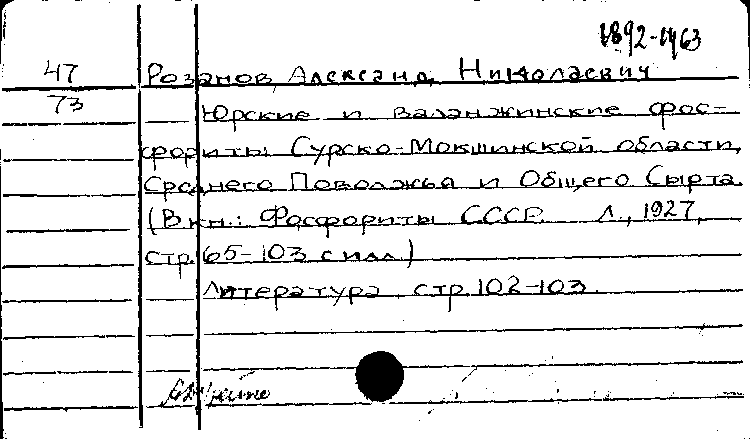 1892-1963
47 Розанов, Александ. Николаевич
73 Юрские и валанжинские фос-
фориты Сурско-Мокшинской области,
Среднего Поволжья и Общего Сырта.
(В кн.: Фосфориты СССР. Л., 1927,
стр. 65-103 с илл.)
Литература стр. 102-103.